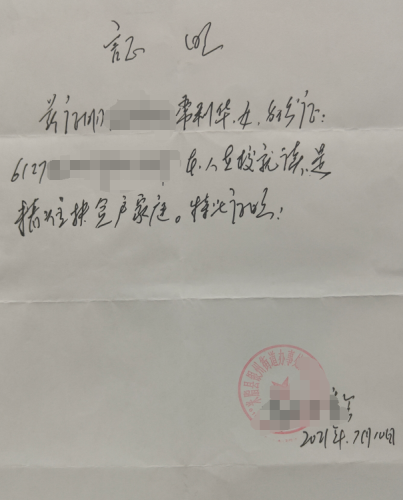 证 明
兹证明 常利华,女,身份证:
6127 本人在校就读,是
精准扶贫户家庭。特此证明:
街道办事
2021年.7月10日